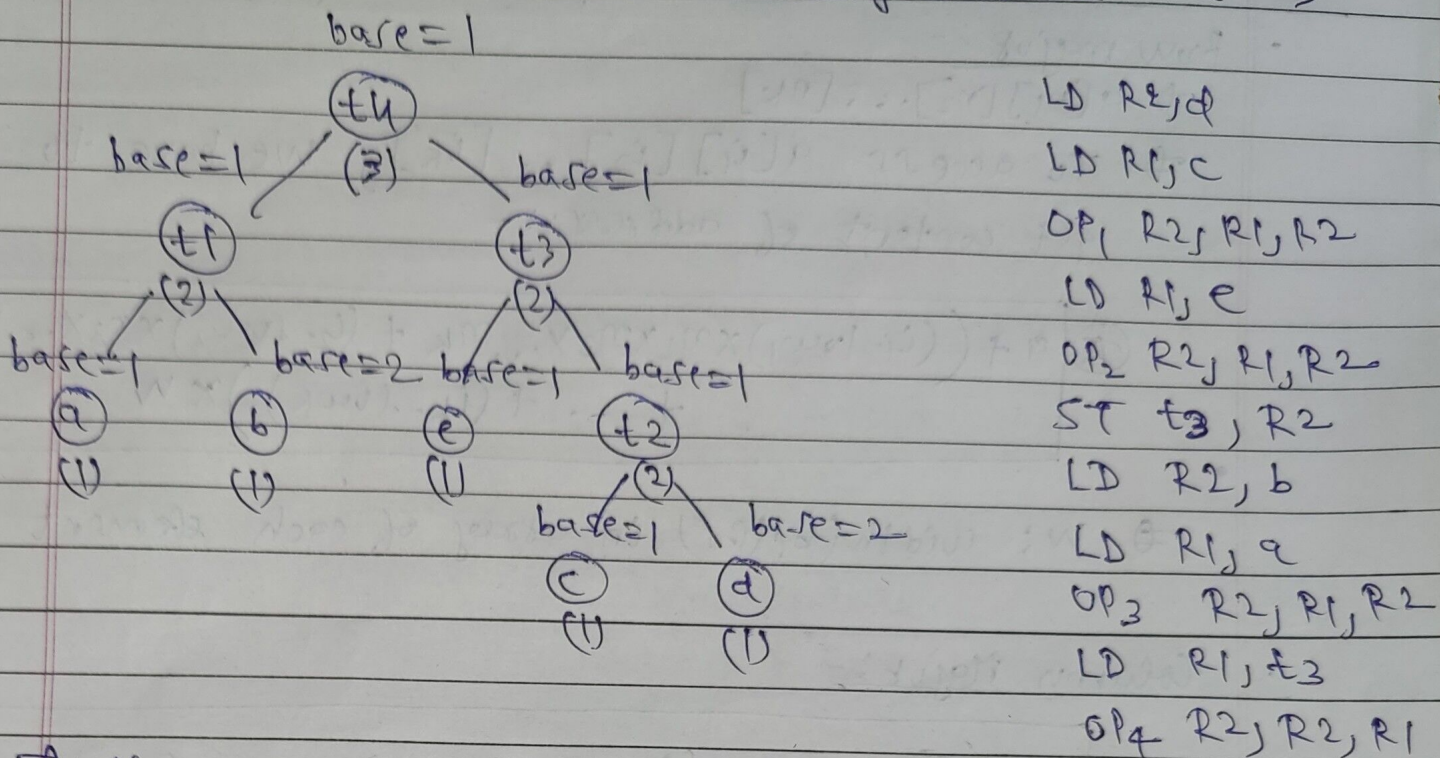 base=1
t4
base=1 (3) base=1
t1 t3
(2) (2)
base=1 base=2 base=1 base=1
a b e t2
(1) (1) (1) (2)
base=1 base=2
c d
(1) (1)
LD R2,d
LD R1,c
OP1 R2, R1, R2
LD R1, e
OP2 R2, R1, R2
ST t3, R2
LD R2, b
LD R1, a
OP3 R2, R1, R2
LD R1, t3
OP4 R2, R2, R1